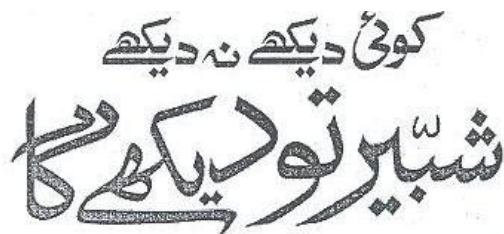 کوئی دیکھے نہ دیکھے
شبّیر تو دیکھے گا